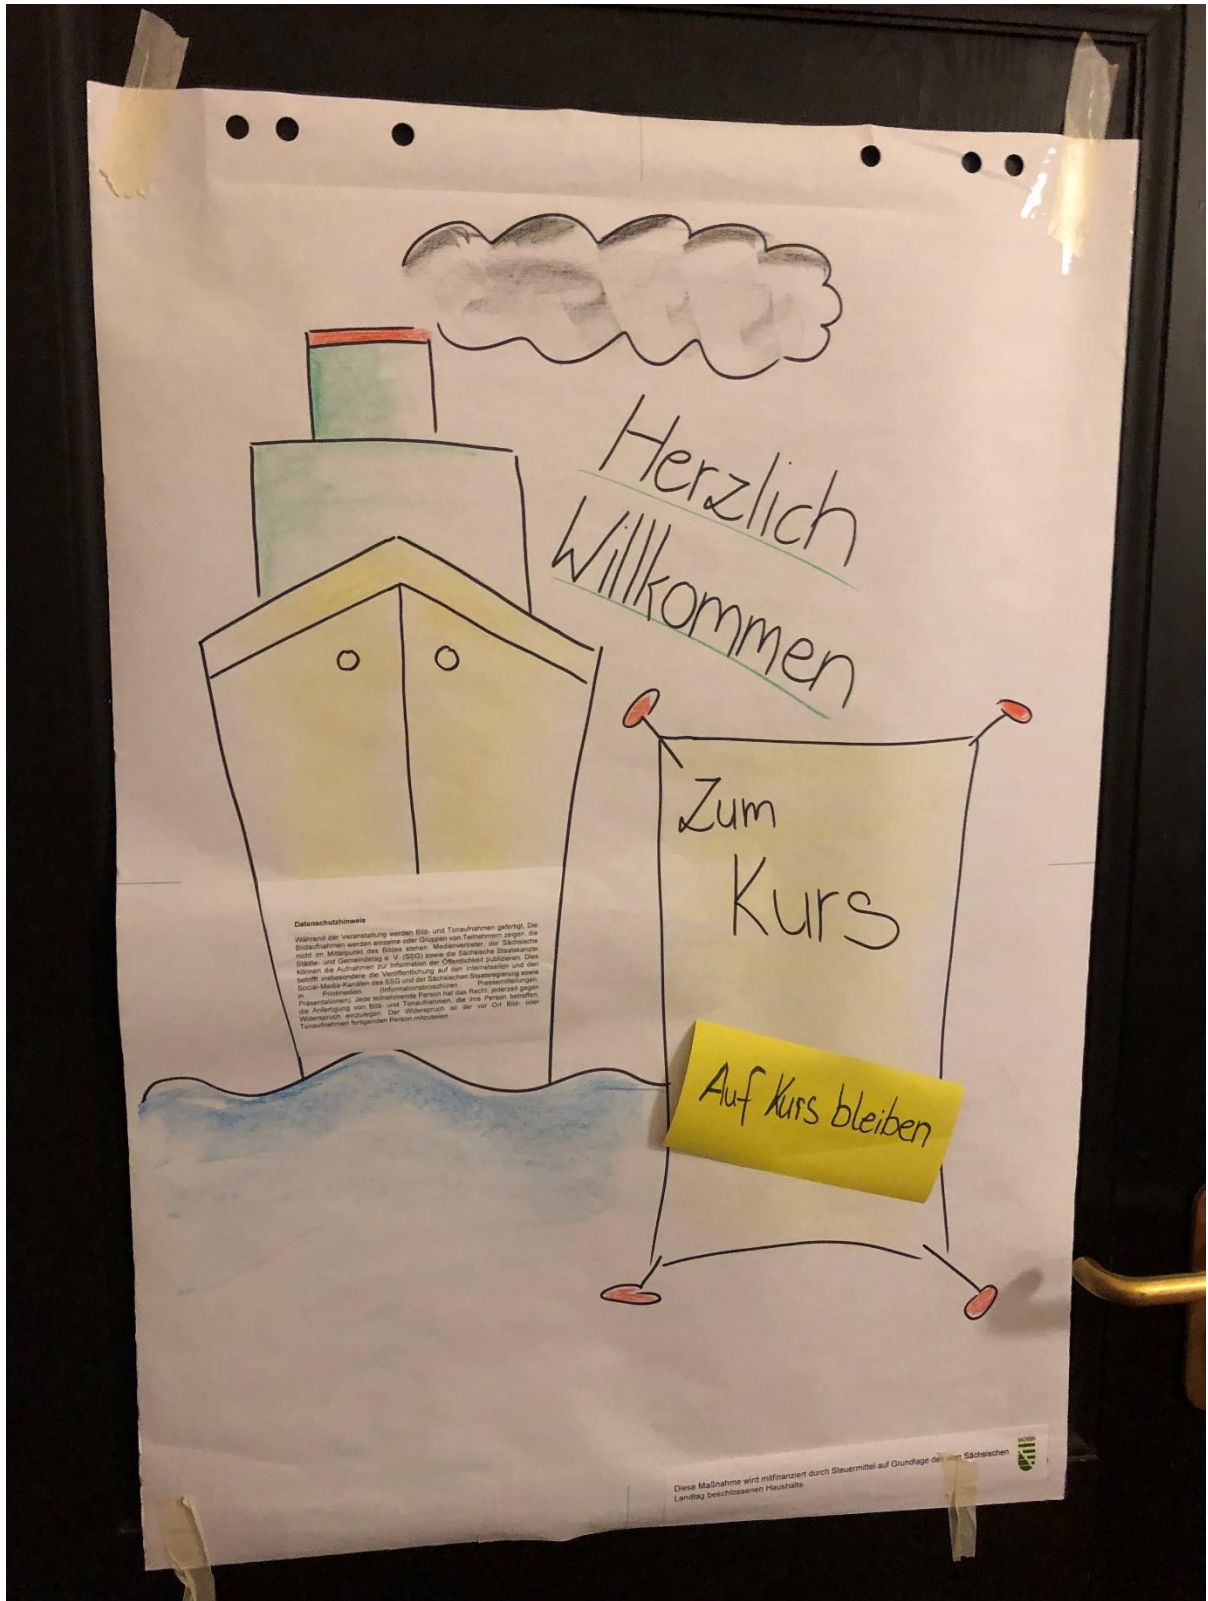 Herzlich
Willkommen
Zum
Kurs
Auf Kurs bleiben
Datenschutzhinweis
Während der Veranstaltung werden Bild- und Tonaufnahmen gefertigt. Die
Bildaufnahmen werden einzelne oder Gruppen von Teilnehmern zeigen, die
nicht im Mittelpunkt des Bildes stehen. Medienvertreter, der Sächsische
Städte- und Gemeindetag e. V. (SSG) sowie die Sächsische Staatskanzlei
können die Aufnahmen zur Information der Öffentlichkeit publizieren. Dies
betrifft insbesondere die Veröffentlichung auf den Internetseiten und den
Social-Media-Kanälen des SSG und der Sächsischen Staatsregierung sowie
in Printmedien (Informationsbroschüren, Pressemitteilungen,
Präsentationen). Jede teilnehmende Person hat das Recht, jederzeit gegen
die Anfertigung von Bild- und Tonaufnahmen, die ihre Person betreffen,
Widerspruch einzulegen. Der Widerspruch ist der vor Ort Bild- oder
Tonaufnahmen fertigenden Person mitzuteilen.
SACHSEN
Diese Maßnahme wird mitfinanziert durch Steuermittel auf Grundlage des vom Sächsischen
Landtag beschlossenen Haushalts.